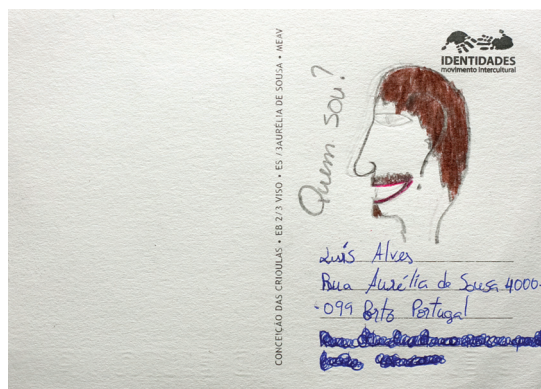 IDENTIDADES
movimento intercultural
CONCEIÇÃO DAS CRIOULAS • EB 2/3 VISO • ES / 3AURÉLIA DE SOUSA • MEAV
Quem sou?
Luís Alves
Rua Aurélia de Sousa 4000-
-099 Porto Portugal